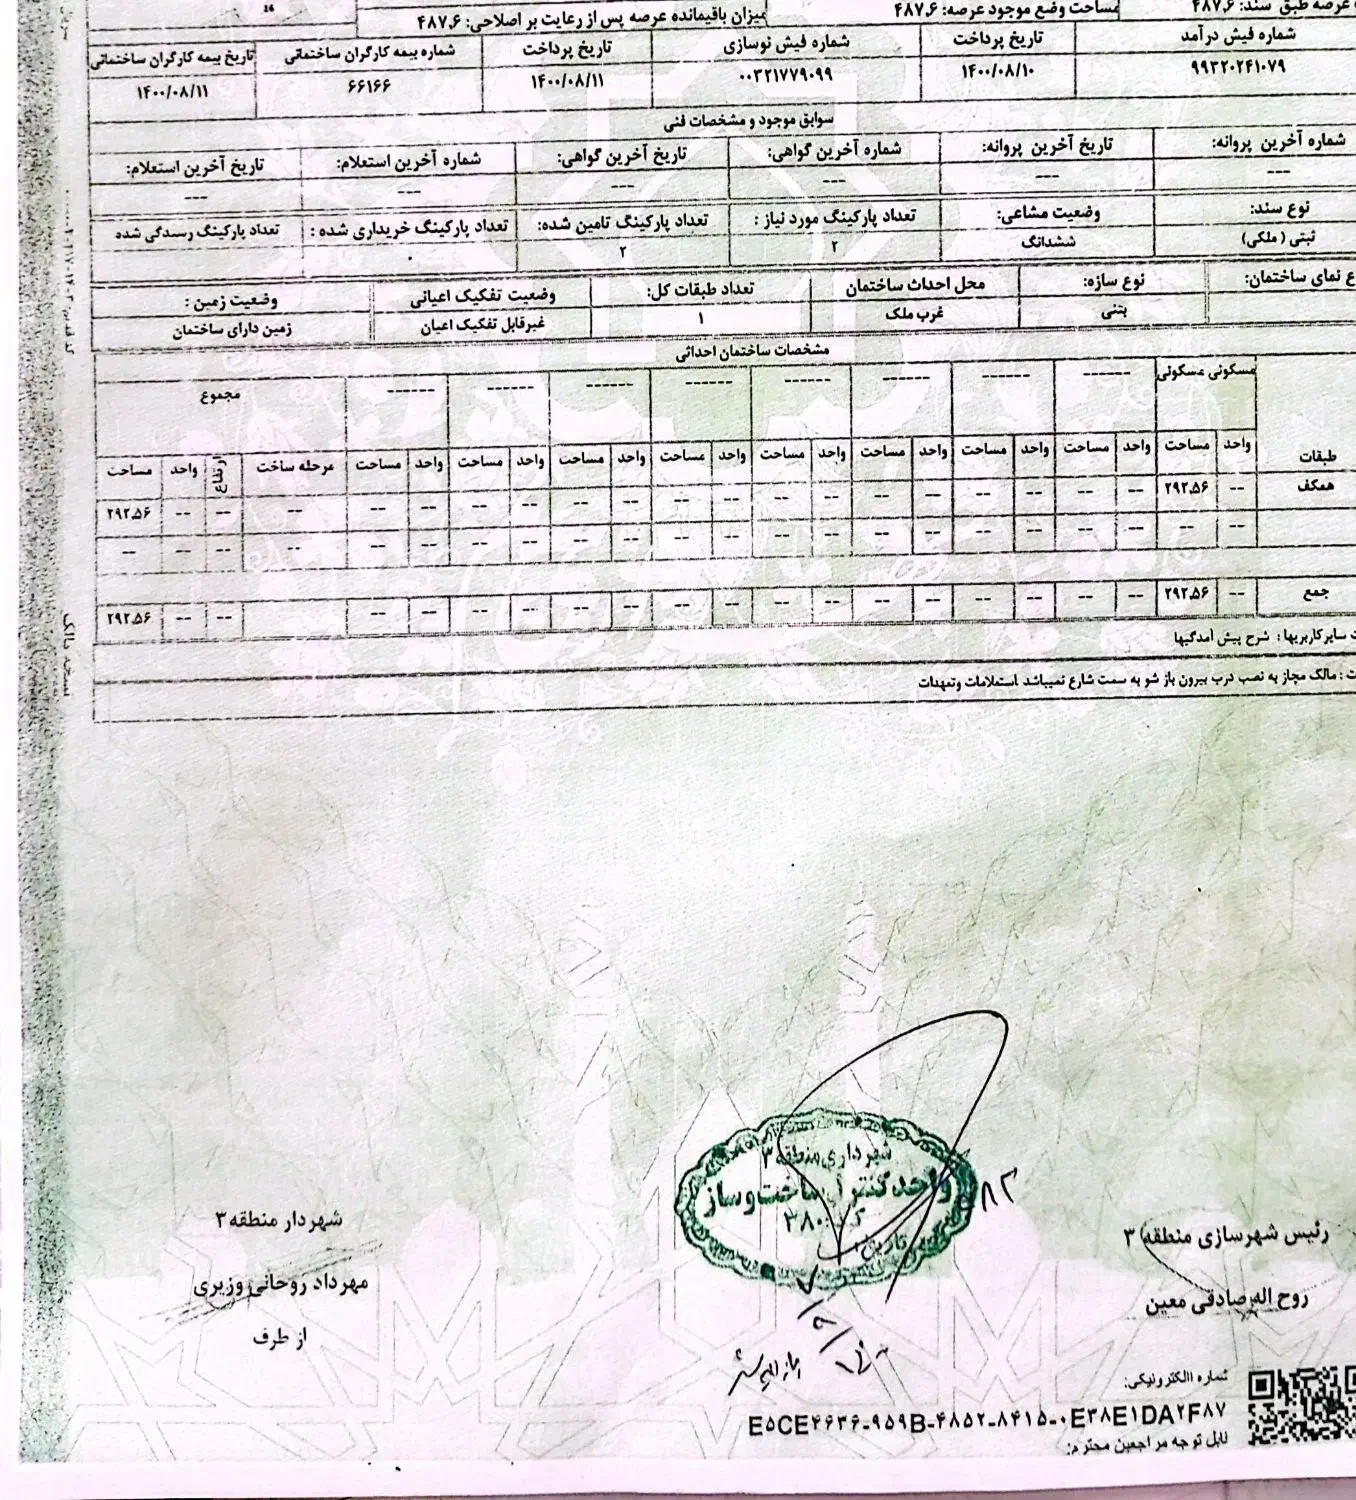 عرصه طبق سند: ۴۸۷٫۶ مساحت وضع موجود عرصه: ۴۸۷٫۶ میزان باقیمانده عرصه پس از رعایت بر اصلاحی: ۴۸۷٫۶
شماره فیش درآمد تاریخ پرداخت شماره فیش نوسازی تاریخ پرداخت شماره بیمه کارگران ساختمانی تاریخ بیمه کارگران ساختمانی
۹۹۳۲۰۲۴۱۰۷۹ ۱۴۰۰/۰۸/۱۰ ۰۰۳۲۱۷۷۹۰۹۹ ۱۴۰۰/۰۸/۱۱ ۶۶۱۶۶ ۱۴۰۰/۰۸/۱۱
سوابق موجود و مشخصات فنی
شماره آخرین پروانه: تاریخ آخرین پروانه: شماره آخرین گواهی: تاریخ آخرین گواهی: شماره آخرین استعلام: تاریخ آخرین استعلام:
--- --- --- --- --- ---
نوع سند: وضعیت مشاعی: تعداد پارکینگ مورد نیاز : تعداد پارکینگ تامین شده: تعداد پارکینگ خریداری شده : تعداد پارکینگ رسدگی شده
ثبتی ( ملکی) ششدانگ ۲ ۲ ۰
ع نمای ساختمان: نوع سازه: محل احداث ساختمان تعداد طبقات کل: وضعیت تفکیک اعیانی وضعیت زمین :
بتنی غرب ملک ۱ غیرقابل تفکیک اعیان زمین دارای ساختمان
مشخصات ساختمان احداثی
مسکونی مسکونی ------ ------ ------ ------ ------ ------ ------ ------ مجموع
طبقات واحد مساحت واحد مساحت واحد مساحت واحد مساحت واحد مساحت واحد مساحت واحد مساحت واحد مساحت واحد مساحت مرحله ساخت ارتفاع واحد مساحت
همکف -- ۲۹۲.۵۶ -- -- -- -- -- -- -- -- -- -- -- -- -- -- -- -- -- -- -- ۲۹۲.۵۶
-- -- -- -- -- -- -- -- -- -- -- -- -- -- -- -- -- -- -- -- -- --
جمع -- ۲۹۲.۵۶ -- -- -- -- -- -- -- -- -- -- -- -- -- -- -- -- -- -- ۲۹۲.۵۶
ت سایرکاربریها : شرح پیش آمدگیها
ت : مالک مجاز به نصب درب بیرون باز شو به سمت شارع نمیباشد .استعلامات وتعهدات
نسخه مالک
شهرداری منطقه ۳
واحد کنترل ساخت و ساز
کد: ۳۸۰
تاریخ
رئیس شهرسازی منطقه ۳
روح اله صادقی معین
شهردار منطقه ۳
مهرداد روحانی وزیری
از طرف
شماره االکترونیکی:
E۵CE۴۶۳۶-۹۵۹B-۴۸۵۲-۸۴۱۵-۰E۳۸E۱DA۲F۸۷
قابل توجه مراجعین محترم: